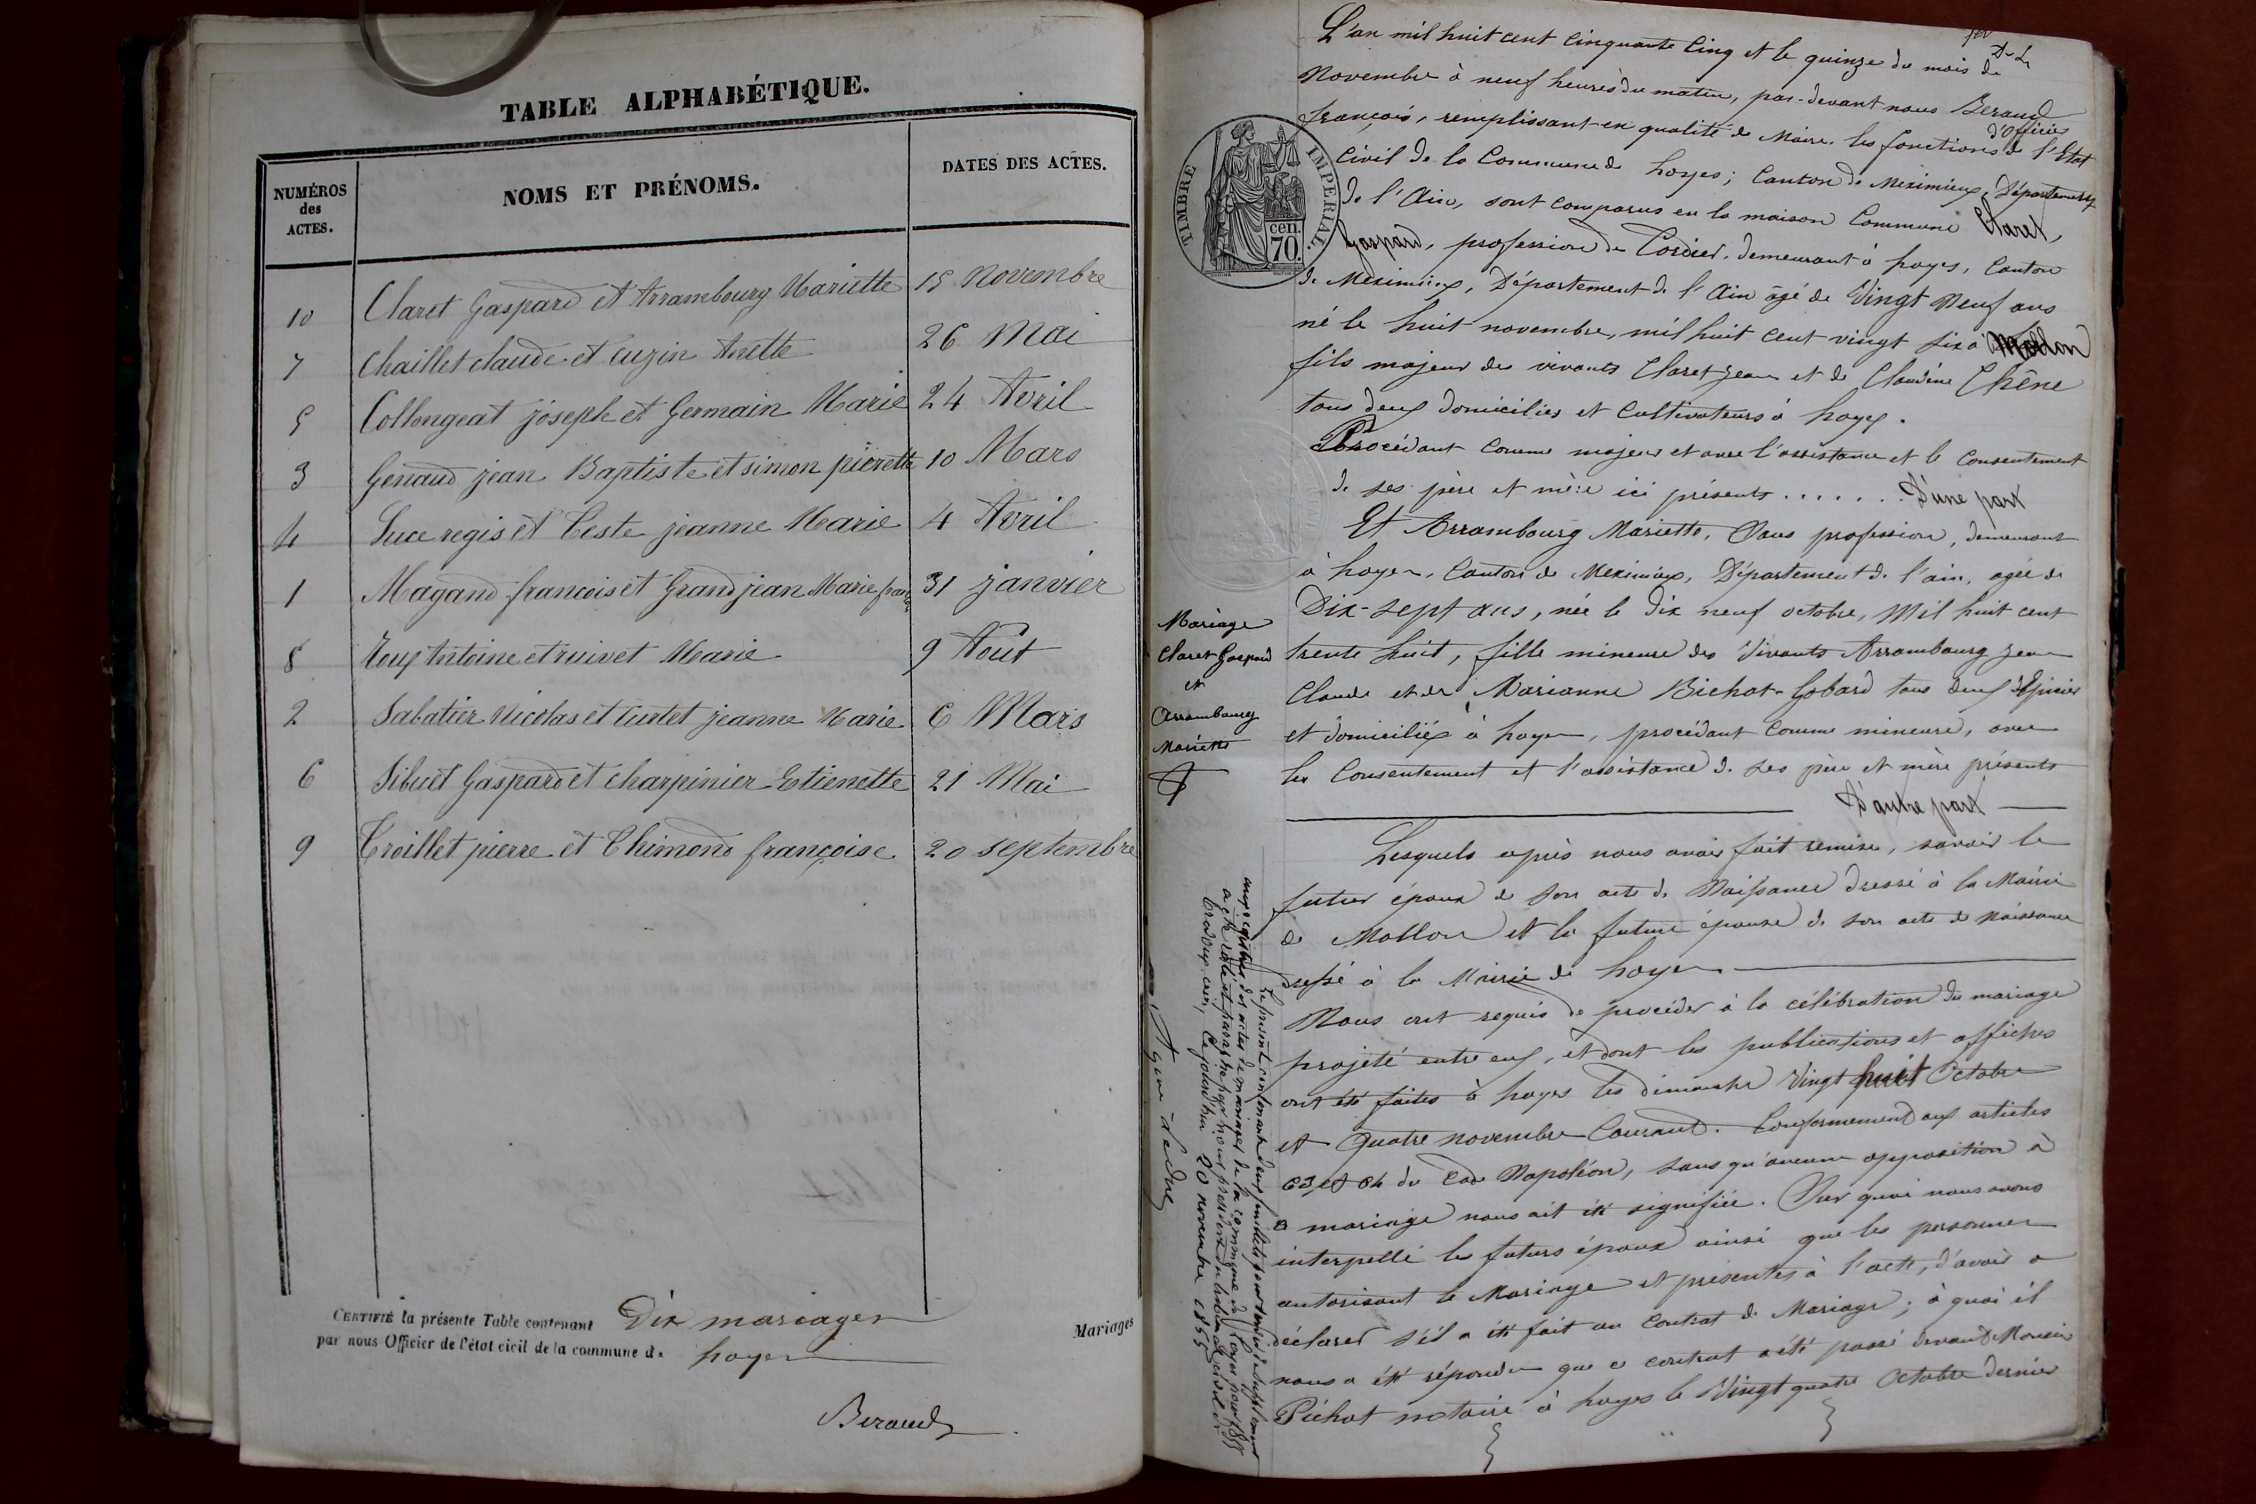 TABLE ALPHABÉTIQUE.
NUMÉROS des ACTES.
NOMS ET PRÉNOMS.
DATES DES ACTES.
10 Claret Gaspard et Arrambourg Mariette 15 Novembre
7 Chaillet claude et Cuzin Anette 26 Mai
5 Collongeat joseph et Germain Marie 24 Avril
3 Genaud jean Baptiste et simon pierrette 10 Mars
4 Luce regis et Ceste jeanne Marie 4 Avril
1 Magand francois et Grandjean Marie 31 janvier
8 Antoine et ruivet Marie 9 Aout
2 Sabatier Nicolas et Curtet jeanne Marie 6 Mars
6 Sibuet Gaspard et charpinier Etienette 21 Mai
9 Troillet pierre et Thimond françoise 20 septembre
CERTIFIÉ la présente Table contenant Dix mariages
par nous Officier de l'état civil de la commune de loyes
Mariages
Beraud
L'an mil huit cent cinquante cinq et le quinze du mois de
Novembre à neuf heures du matin, par-devant nous Beraud
françois, remplissant en qualité de Maire les fonctions d'officier de l'Etat
Civil de la Commune de loyes; Canton de Meximieux, Département
de l'Ain, sont comparus en la maison Commune Claret,
Gaspard, profession de Cordier, demeurant à loyes, Canton
de Meximieux, Département de l'Ain âgé de Vingt Neuf ans
né le huit novembre, mil huit cent vingt six à Mollon
fils majeur des vivants Claret jean et de Claudine Chêne
tous deux domiciliés et Cultivateurs à loyes.
Procédant comme majeur et avec l'assistance et le consentement
de ses père et mère ici présents . . . . . . D'une part
Et Arrambourg Mariette, Sans profession, demeurant
à loyes, Canton de Meximieux, Département de l'ain, agée de
Dix-sept ans, née le dix neuf octobre, Mil huit cent
trente huit, fille mineure des Vivants Arrambourg jean
Claude et de Marianne Bichat-Gobard tous deux Epicier
et domiciliés à loyes, procédant comme mineure, avec
les Consentement et l'assistance de ses père et mère présents
D'autre part
Lesquels après nous avoir fait remise, savoir le
futur époux de son acte de Naissance dressé à la Mairie
de Mollon et la future épouse de son acte de Naissance
dressé à la Mairie de loyes
Nous ont requis de procéder à la célébration du mariage
projeté entre eux, et dont les publications et affiches
ont été faites à loyes les dimanche Vingt huit Octobre
et Quatre novembre Courant. Conformement aux articles
63 et 64 du Code Napoléon, sans qu'aucune opposition à
ce mariage nous ait été signifiée. Sur quoi nous avons
interpellé les futurs époux ainsi que les personnes
autorisant le Mariage et présentes à l'acte, d'avoir à
déclarer s'il a été fait un Contrat de Mariage; à quoi il
nous a été répondu que ce contrat a été passé devant Monsieur
Péchat notaire à loyes le Vingt quatre Octobre dernier
TIMBRE IMPÉRIAL.
70 cen.
Mariage
Claret Gaspard
et
Arrambourg
Mariette
Le présent contenant deux feuillets pour servir de supplément
aux registres des actes de mariages de la commune de Loyes pour 1855
a été coté et paraphé par nous président du tribunal civil de
Trévoux (ain), Cejourd'hui 20 novembre 1855